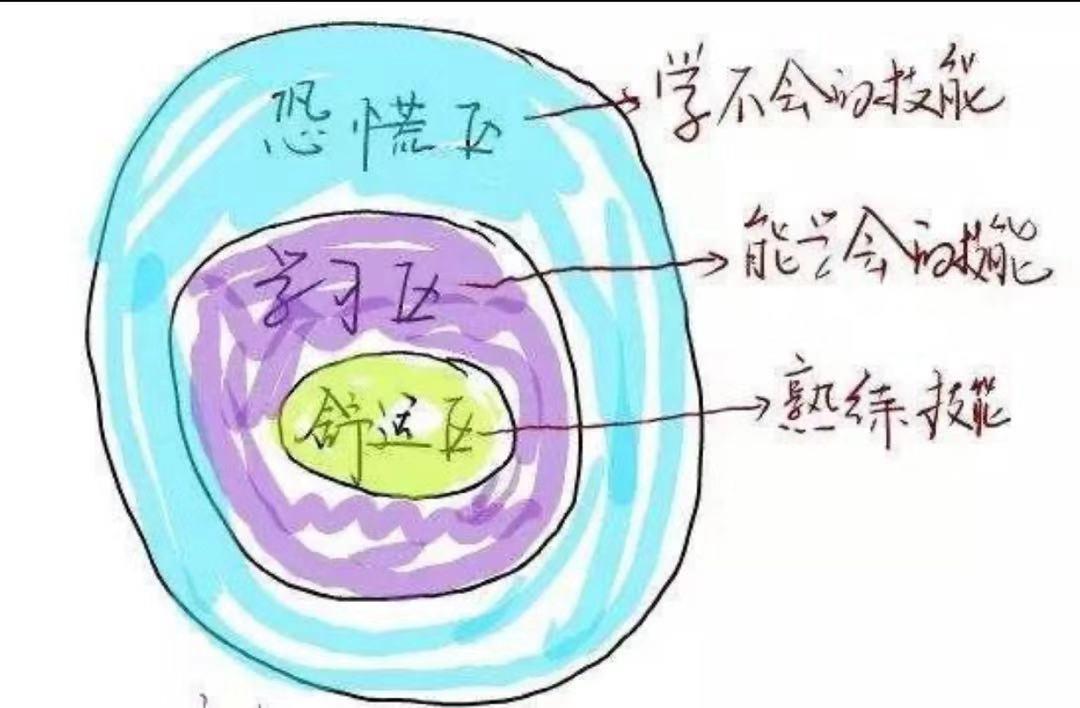 恐慌区
学不会的技能
学习区
能学会的技能
舒适区
熟练技能